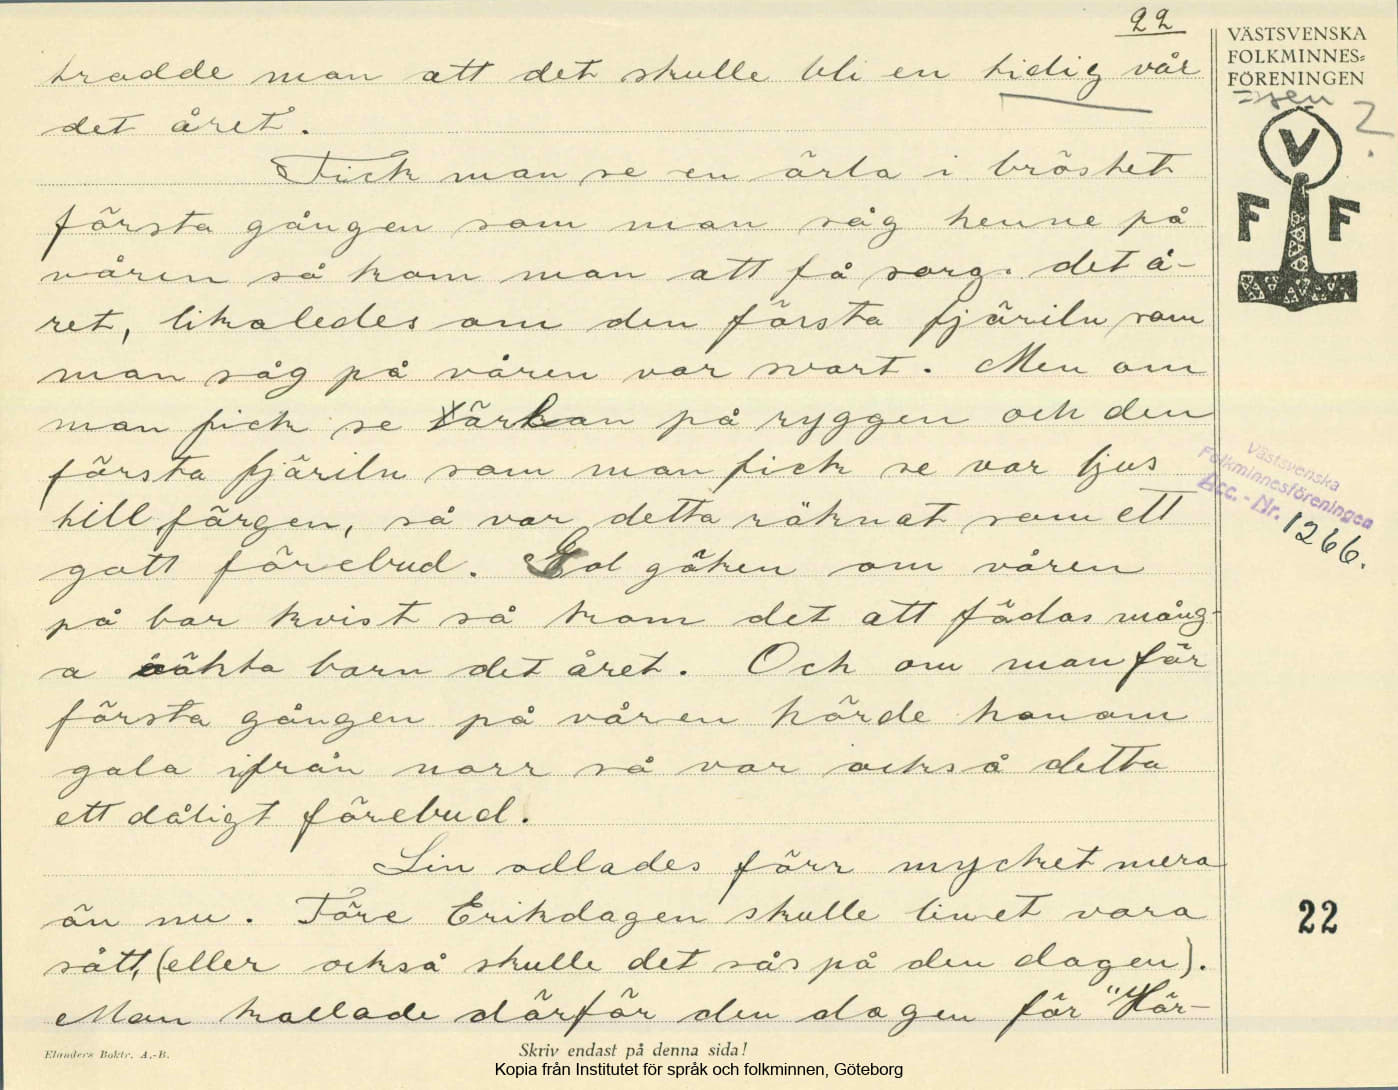 22
VÄSTSVENSKA
FOLKMINNES=
FÖRENINGEN
trodde man att det skulle bli en tidig vår
=sen ?
det året.
V
F F
Fick man se en ärla i bröstet
första gången som man såg henne på
våren så kom man att få sorg. det å-
ret, likaledes om den första fjäriln som
man såg på våren var svart. Men om
man fick se ärlan på ryggen och den
första fjäriln som man fick se var ljus
till färgen, så var detta räknat som ett
gott förebud. Gol göken om våren
på bar kvist så kom det att födas mång-
a oäkta barn det året. Och om man för
första gången på våren hörde honom
gala ifrån norr så var också detta
ett dåligt förebud.
Västsvenska
Folkminnesföreningen
Acc. - Nr. 1266.
Lin odlades förr mycket mera
än nu. Före Erikdagen skulle linet vara
sått, (eller också skulle det sås på den dagen).
Man kallade därför den dagen för "Hör-
22
Elanders Boktr. A.-B.
Skriv endast på denna sida!
Kopia från Institutet för språk och folkminnen, Göteborg